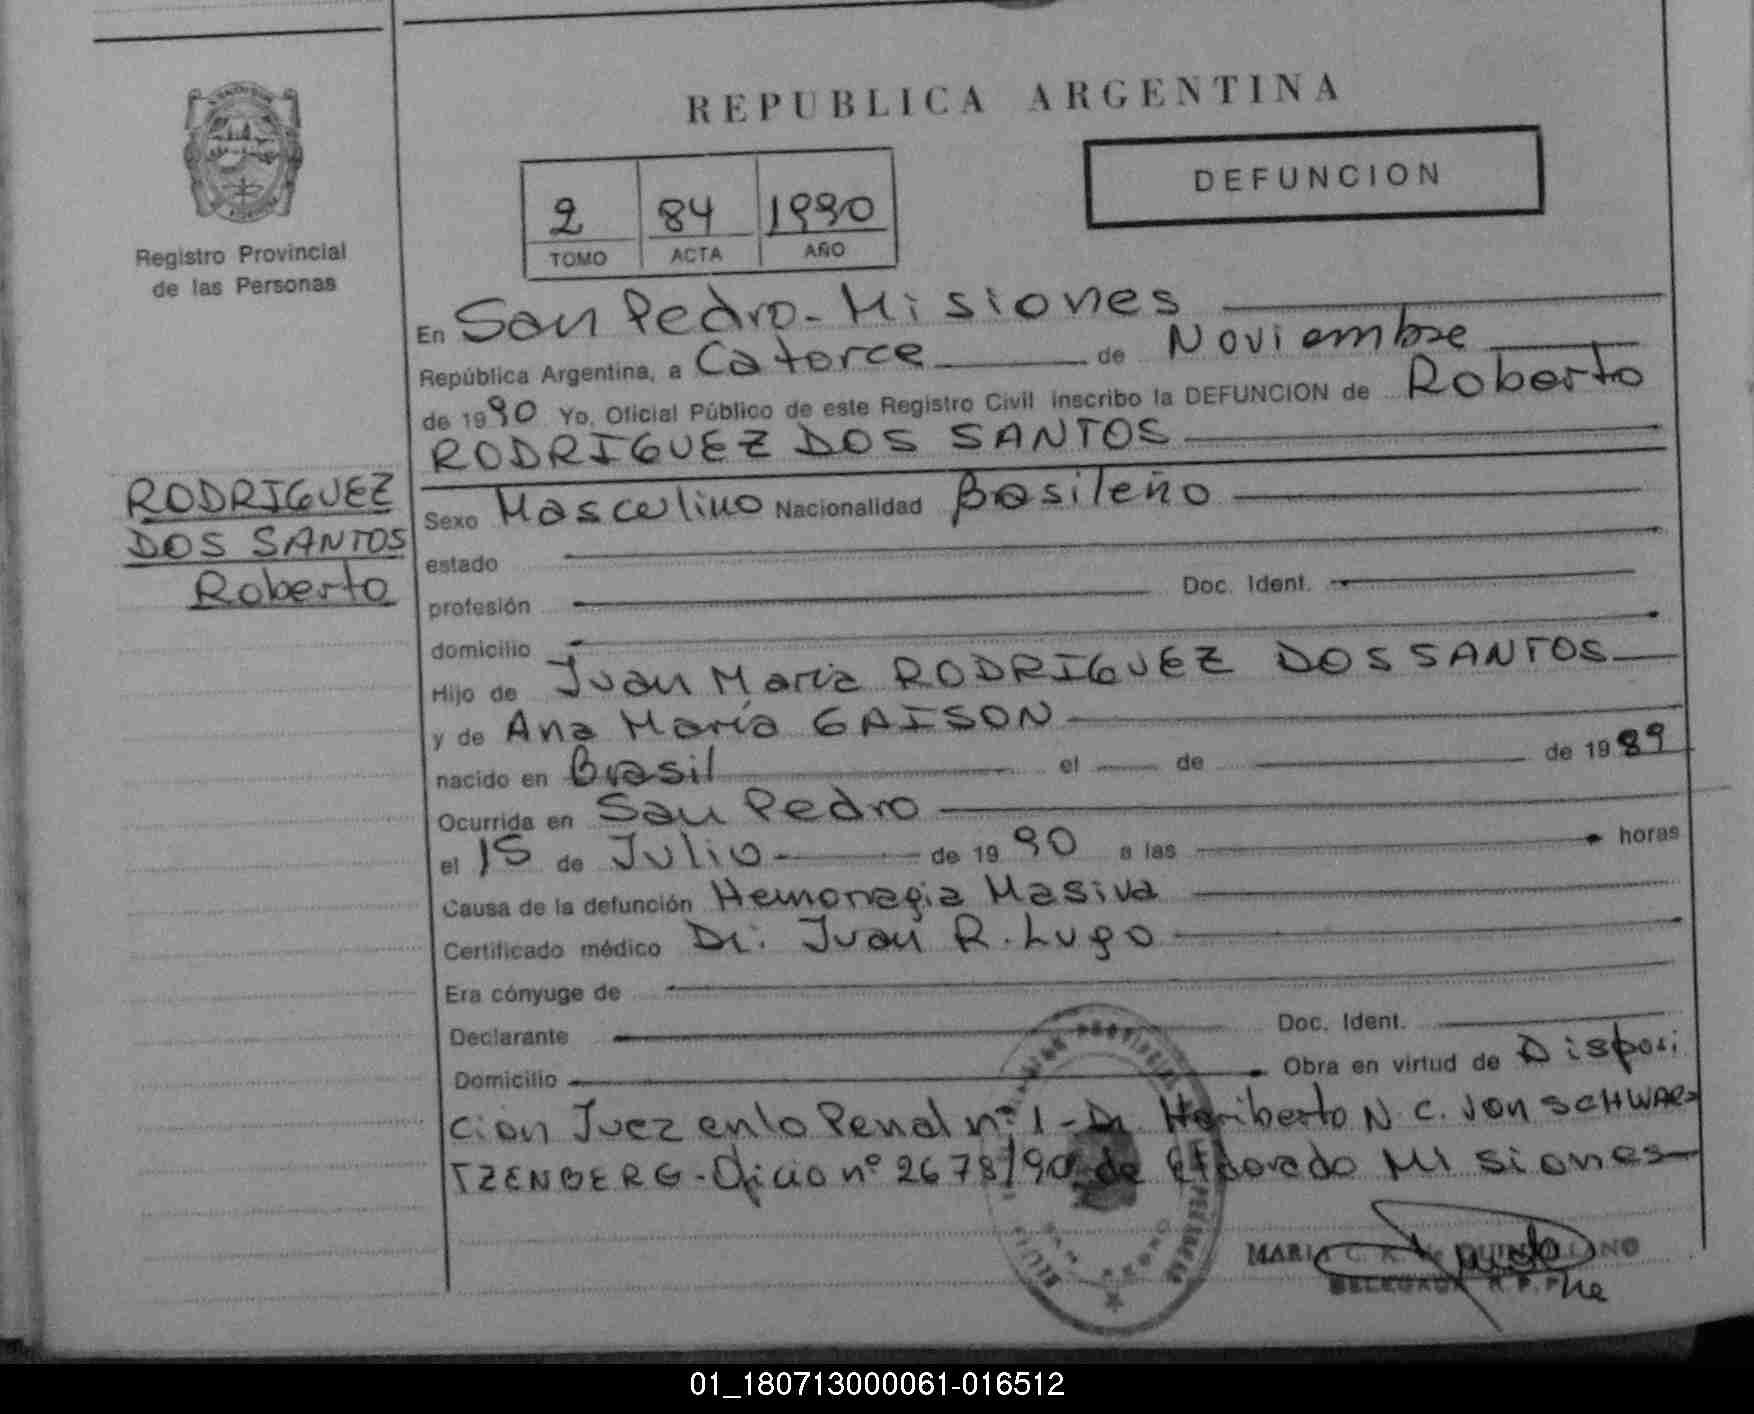 REPUBLICA ARGENTINA
DEFUNCION
2 84 1990
TOMO ACTA AÑO
Registro Provincial
de las Personas
En San Pedro - Misiones
República Argentina, a Catorce de Noviembre
de 1990 Yo, Oficial Público de este Registro Civil inscribo la DEFUNCION de Roberto
RODRIGUEZ DOS SANTOS
RODRIGUEZ
DOS SANTOS
Roberto
Sexo Masculino Nacionalidad Brasileño
estado
profesión Doc. Ident.
domicilio
Hijo de Juan María RODRIGUEZ DOS SANTOS
y de Ana María GAISON
nacido en Brasil el de de 1989
Ocurrida en San Pedro
el 15 de Julio de 1990 a las horas
Causa de la defunción Hemorragia Masiva
Certificado médico Dr. Juan R. Lugo
Era cónyuge de
Declarante Doc. Ident.
Domicilio Obra en virtud de Disposi
cion Juez en lo Penal nº 1 - Dr. Heriberto N. C. von SCHWAR
TZENBERG - Oficio nº 2678/90 de Eldorado Misiones
MARIA C.
DELEGADA R. P. P.
01_180713000061-016512